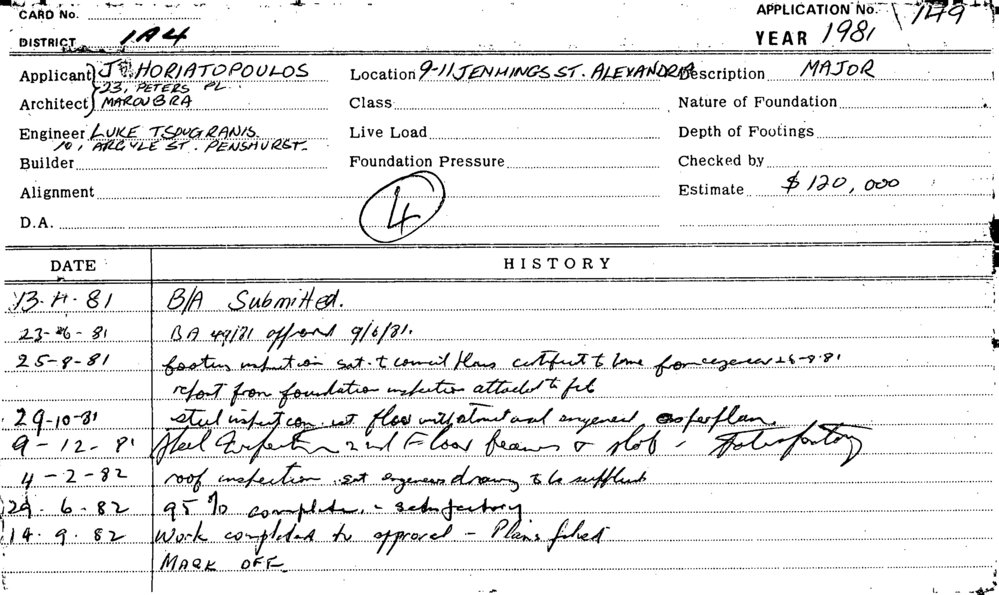 CARD No.
APPLICATION No. 149
DISTRICT 1A4
YEAR 1981
Applicant J HORIATOPOULOS
Location 9-11 JENNINGS ST. ALEXANDRIA
Description MAJOR
23, PETERS PL.
Architect MAROUBRA
Class
Nature of Foundation
Engineer LUKE TSOUGRANIS
Live Load
Depth of Footings
10, ARGYLE ST. PENSHURST.
Builder
Foundation Pressure
Checked by
Alignment
Estimate $120,000
4
D.A.
DATE HISTORY
81 B/A Submitted.
23-6-81 BA 49/81 approved 9/6/81.
25-8-81 footing inspection sat. to council plans certificate to come from engineer 26-8-81
report from foundation inspection attached to file
29-10-81 steel inspection floor engineer as per plan
9-12-81 Steel Inspection 2nd Floor beams & slab - Satisfactory
4-2-82 roof inspection sat engineers drawing to be supplied
29.6.82 95% complete. - satisfactory
14.9.82 Work completed to approval - Plans filed
MARK OFF